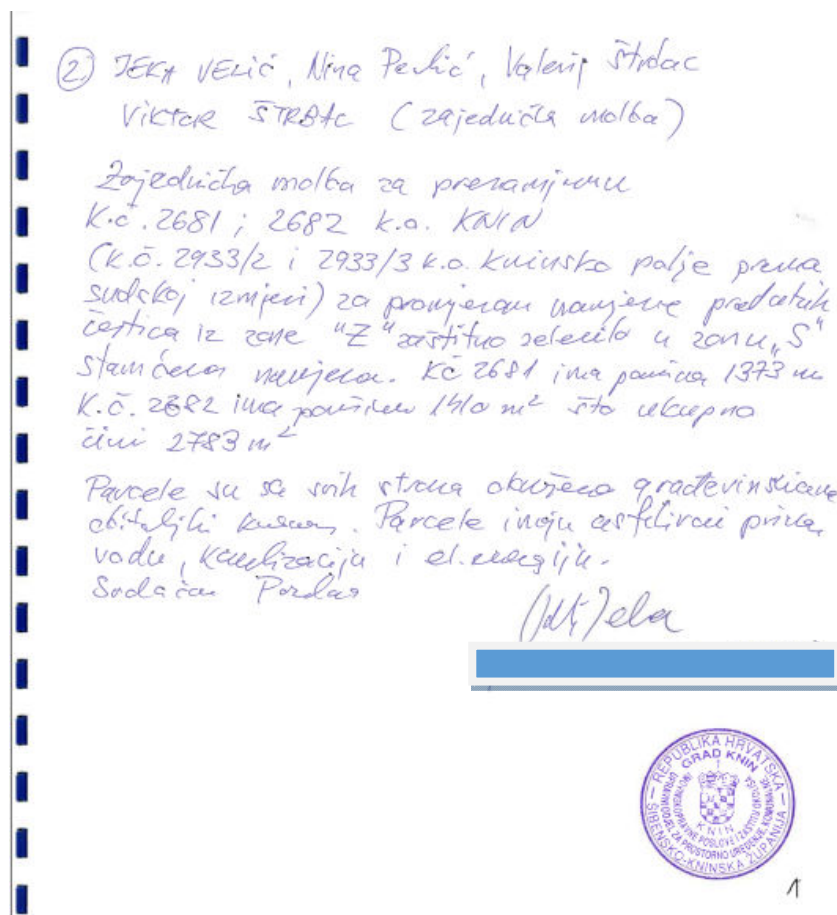 ② JEKA VELIĆ, Nina Perlić, Valerij Štrbac
VIKTOR ŠTRBAC (zajednička molba)
Zajednička molba za prenamjenu
K.č. 2681 ; 2682 K.O. KNIN
(K.Č. 2933/2 i 2933/3 K.O. Kninsko polje prema
sudskoj izmjeri) za promjenom namjene predmetnih
čestica iz zone "Z" zaštitno zelenilo u zonu „S"
stambena namjena. KČ 2681 ima površinu 1373 m
K.Č. 2682 ima površinu 1410 m² što ukupno
čini 2783 m²
Parcele su sa svih strana okružena građevinskim
obiteljskim kućama. Parcele imaju asfaltirani prilaz,
vodu, kanalizaciju i el. energiju.
Srdačan Pozdrav
Jela
REPUBLIKA HRVATSKA
GRAD KNIN
UPRAVNI ODJEL ZA PROSTORNO UREĐENJE, KOMUNALNE,
IMOVINSKOPRAVNE POSLOVE I ZAŠTITU OKOLIŠA
KNIN
ŠIBENSKO-KNINSKA ŽUPANIJA
1